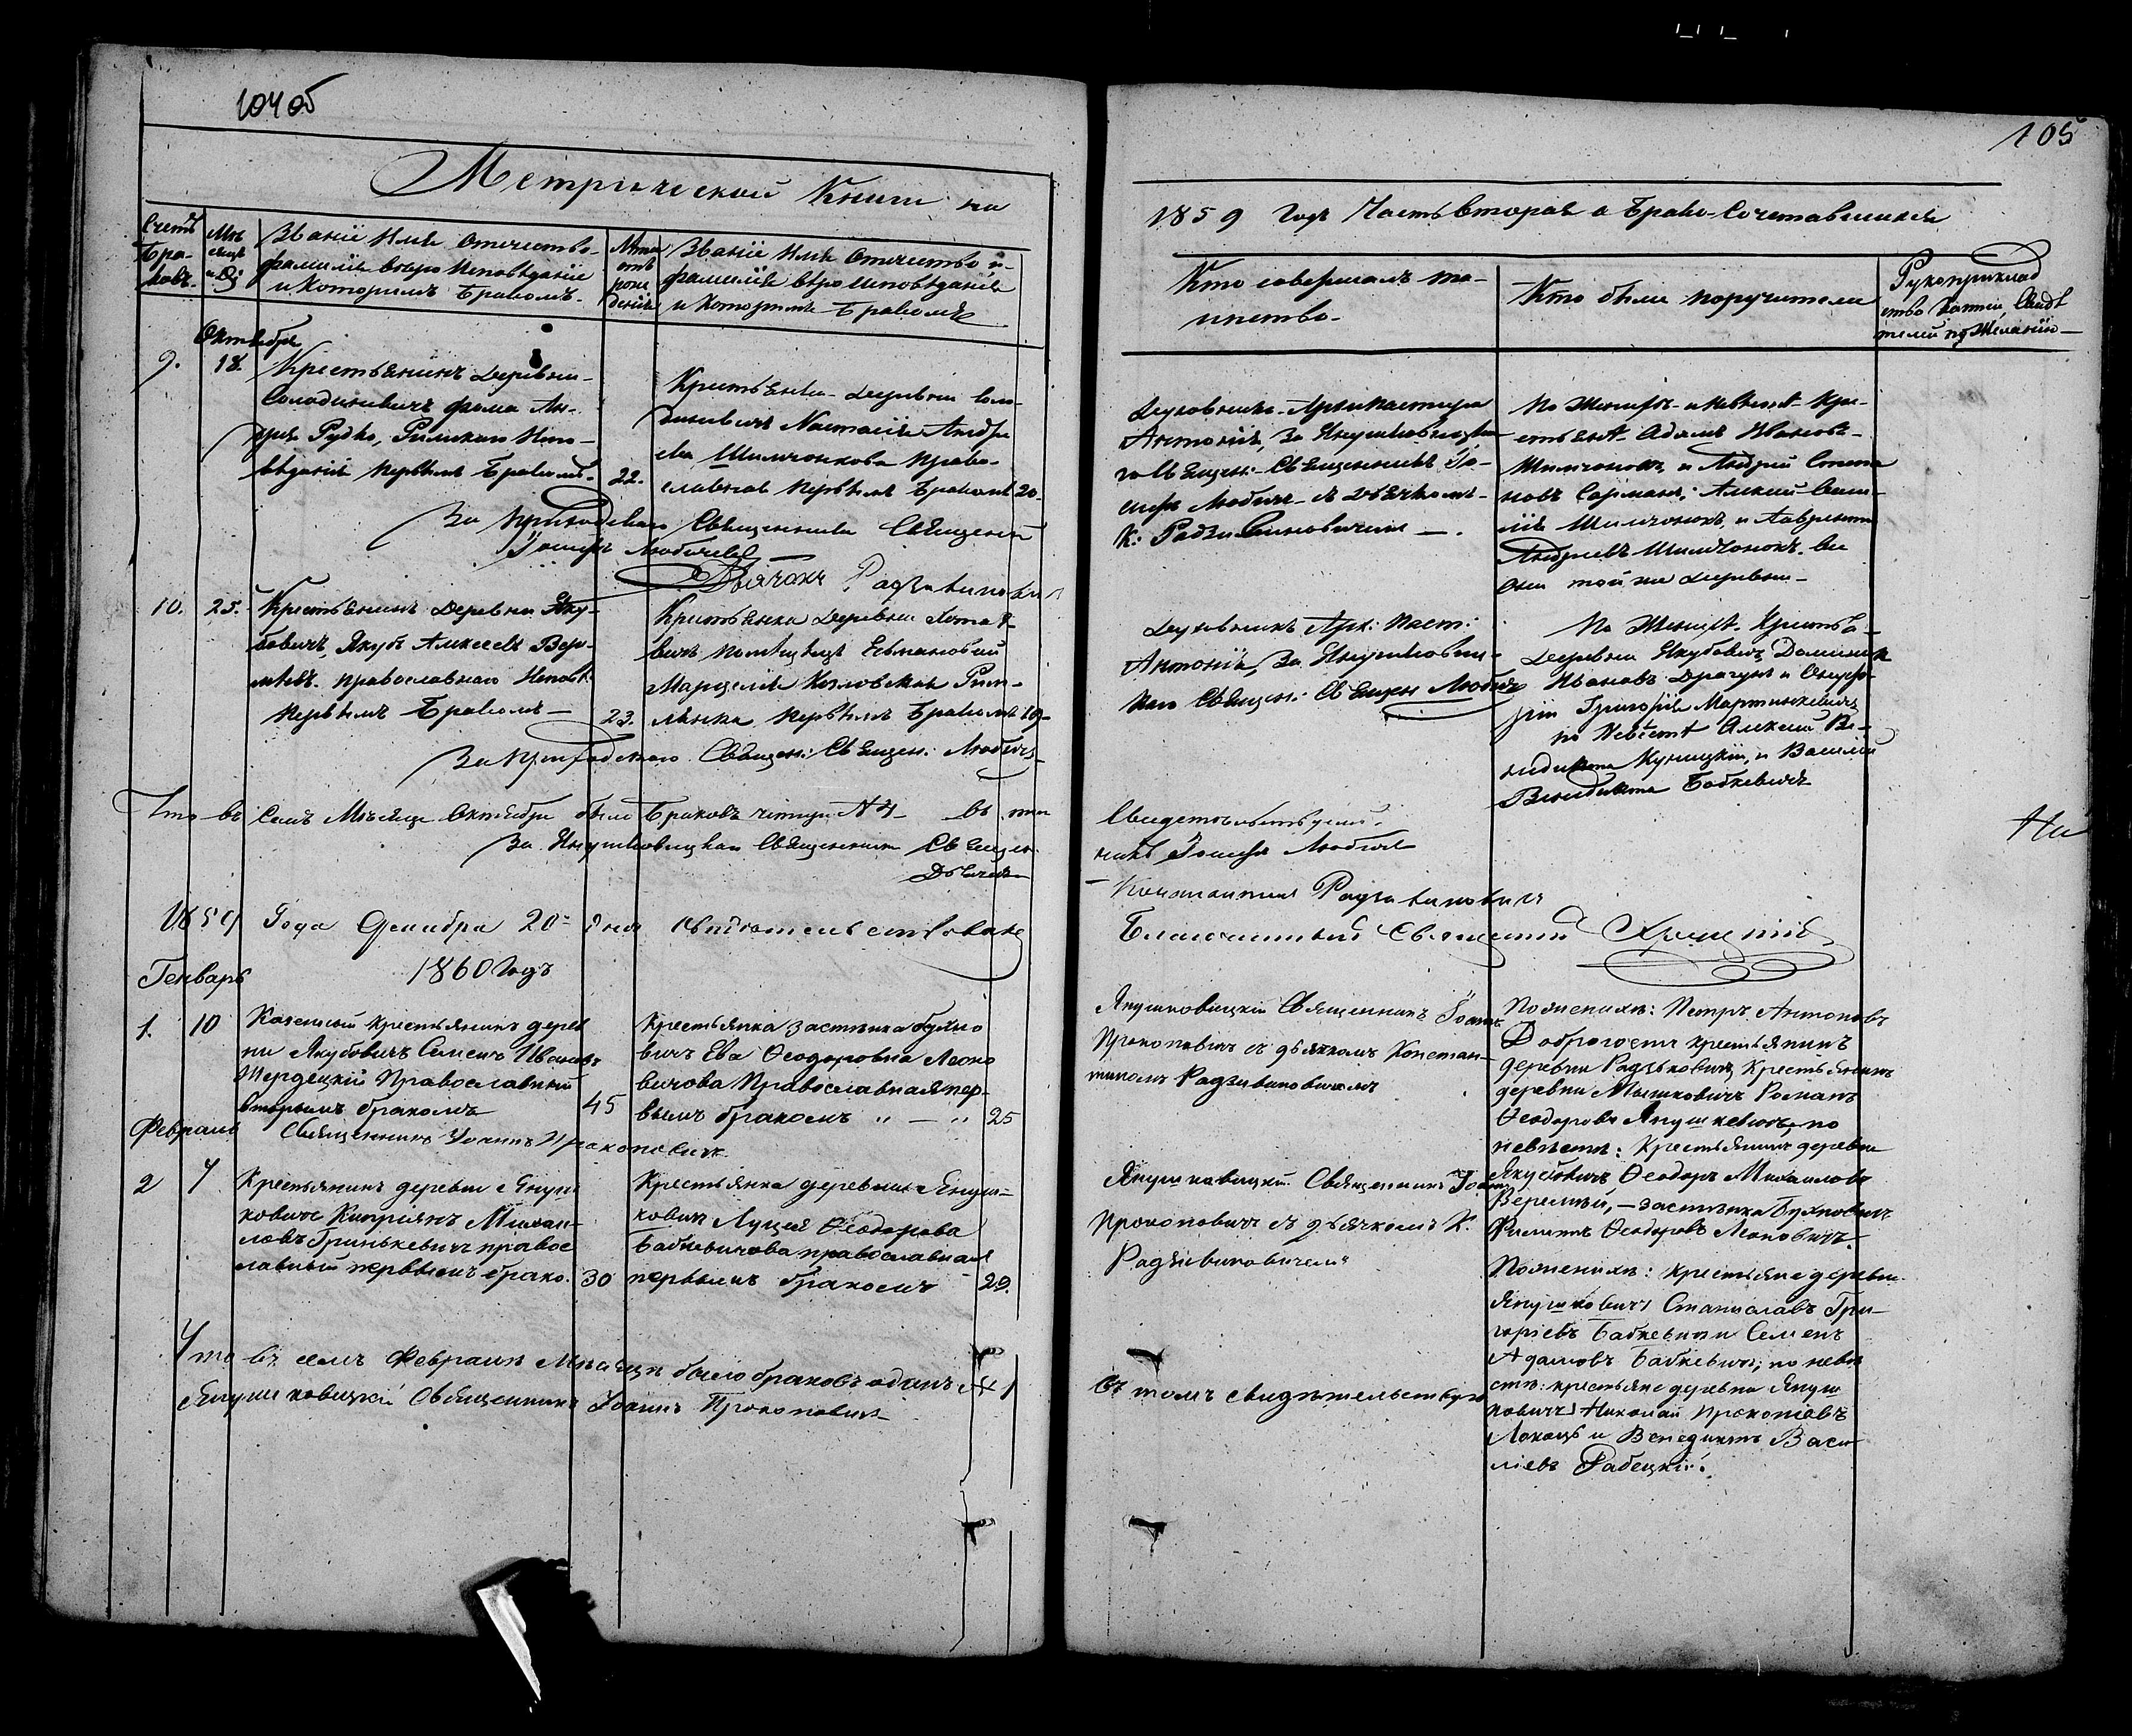 104 об
105
Метрической Книги на
1859 Годъ Часть вторая о Брако-сочетавшихся
Счетъ Бра-ковъ.
Мѣсяцъ и
Званіе Имя Отчество
фамилія вѣро Исповѣданіе
и которымъ Бракомъ.
Лѣта отъ рождения
Званіе Имя Отчество и
фамилія вѣро Исповѣданія
и которымъ Бракомъ
Кто совершалъ та-
инство.
Кто были поручители
Рукоприклад
ство Свидѣ
телей по желанію
Октября
9.
18.
Крестьянинъ деревни
Солодкевичъ Фома
Рудко, Римскаго Испо-
вѣданія первымъ Бракомъ.
22.
Крестьянка деревни
Настасія Андре
ева Шимчонкова право-
славная первымъ Бракомъ
20.
Антоній, за
К: Радзивиновичемъ
По Женихѣ и невѣстѣ кре-
стьяне Адамъ Ивановъ
Шимчонокъ и Андрей
Шимчонокъ и Лаврентій
Андреевъ Шимчонокъ. Все
они той же деревни
За приходскаго Священника Священникъ
Іосифъ Любичъ
Дьячокъ Радзивинович
10.
25.
Крестьянинъ деревни Яку-
бовичъ, Якубъ Алексеевъ Вере-
мѣевъ. православнаго Исповѣ
первымъ Бракомъ
23.
Крестьянка деревни
вичъ помѣщицы
Марцеля Козловская Рим-
лянка первымъ Бракомъ
19
Духовникъ Арх: паст:
Антоній, за Янушковиц-
каго Священ: Священ Любичъ
По Женихѣ Крестьа-
деревни Якубовичъ, Доминикъ
Ивановъ Драгунъ и Онуф-
рій Григорія Мартинкевичъ
по Невѣстѣ Алексей Ве-
недикта Куницкій, и Василій
Венедикта Бабкевичъ
За приходскаго Священ: Священ: Любичъ
Что въ семъ Мѣсяце Октябре было Браковъ четыре №4 въ том
Свидетельствуемъ.
За Янушковицкаго Священника Священ
никъ Іосифъ Любичъ
Дьячекъ
Константинъ Радзивиновичъ
На
1859 Года Декабря 20 дня свидетельствовалъ
Благочинный Священникъ
1860 Годъ
Генварь
1.
10
Казенный крестьянинъ дерев
ни Якубовичъ Семенъ Ивановъ
Жердецкій Православный
вторымъ бракомъ
45
Крестьянка застѣнка Бухно
вичъ Ева Ѳеодоровна Леоно
вичова Православная пер-
вымъ бракомъ „ — „
25
Янушковицкій Священникъ Іоаннъ
Прокоповичъ съ дьячкомъ Констан-
тиномъ Радзивиновичемъ
По женихѣ: Петръ Антоновъ
Доброгостъ крестьянинъ
деревни Радзьковичъ, Крестьянинъ
деревни Мышковичъ Романъ
Ѳеодоровъ Янушкевичъ, по
невѣстѣ: Крестьянинъ деревни
Якубовичъ, Ѳеодоръ Михаиловъ
Веремѣй, — застѣнка Бухновичъ
Филиппъ Ѳеодоровъ Леоновичъ.
Священникъ Іоаннъ Прокоповичъ
Февраль
2
7
Крестьянинъ деревни Януш
ковичъ Кипріянъ Михаи-
ловъ Гринькевичъ правос
лавный первымъ брако.
30
Крестьянка деревни Януш-
ковичъ Луція Ѳеодорова
Бабкевичова православная
первымъ бракомъ
22.
Янушковицкій Священникъ Іоаннъ
Прокоповичъ съ дьячкомъ К.
Радзивиновичемъ
По женихѣ: крестьяне деревни
Янушковичъ Станиславъ Гри-
горіевъ Бабкевичъ и Семенъ
Адамовъ Бабкевичъ; по невѣ
стѣ: крестьяне деревни Януш
ковичъ Николай Прокопіевъ
и Венедиктъ Васи
ліевъ Рабецкій.
Что въ семъ Февралѣ Мѣсяцѣ было браковъ одинъ №1
въ томъ свидѣтельствую
Янушковицкій Священникъ Іоаннъ Прокоповичъ